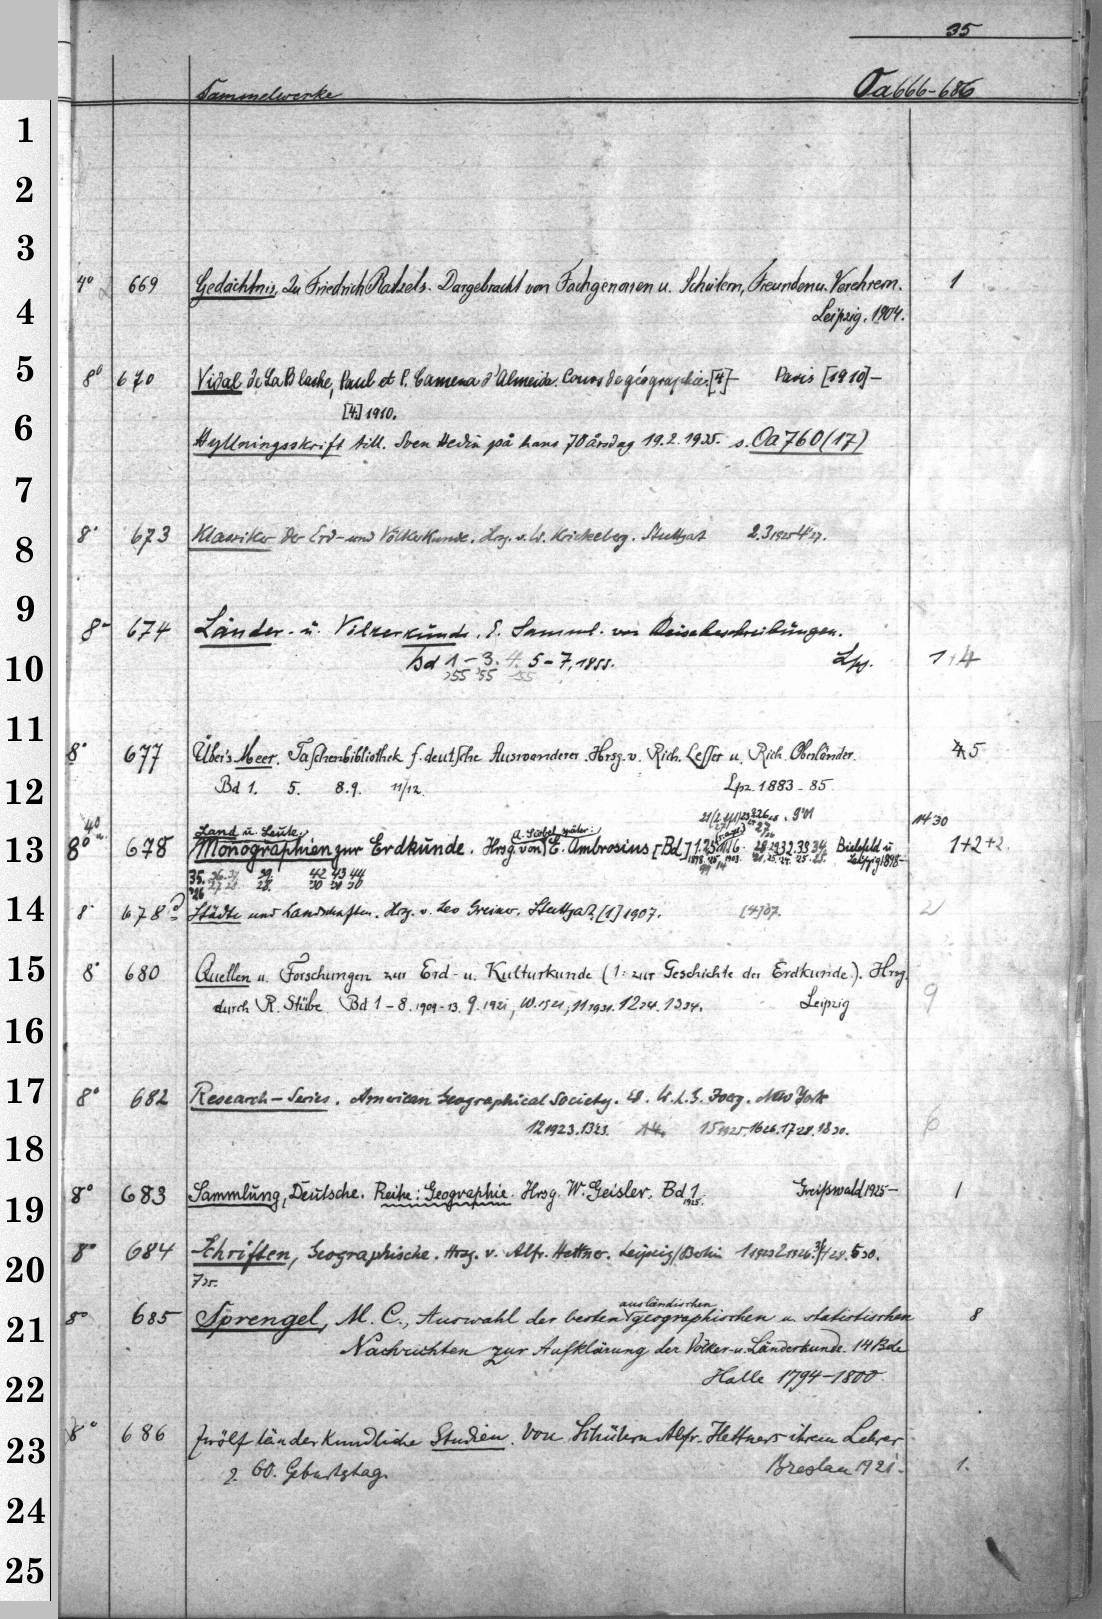 35
Sammelwerke Oa 666-686
1
2
3
4° 669 Gedächtnis, Zu Friedrich Ratzels. Dargebracht von Fachgenossen u. Schülern, Freunden u. Verehrern. 1
4 Leipzig. 1904.
5 8° 670 Vidal de La Blache, Paul et P. Camena d'Almeida. Cours de géographie. [4]- Paris [1910]-
[4.] 1910.
6 Hyllningsskrift till. Sven Hedin på hans 70årsdag 19.2.1935. s. Oa 760 (17)
7
8 8° 673 Klassiker der Erd- und Völkerkunde. Hrg. v. W. Krickeberg. Stuttgart 2.3 1925 4 27.
9 8° 674 Länder- u. Völkerkunde. E. Samml. von Reisebeschreibungen.
10 Bd 1-3. 4. 5-7, 1855. Lpz. 1+4
55 55 55
11 8° 677 Über's Meer. Taschenbibliothek f. deutsche Auswanderer. Hrsg. v. Rich. Lesser u. Rich. Oberländer. 5
12 Bd 1. 5. 8.9. 11/12. Lpz. 1883-85
4° u. Land u. Leute. A. Scobel, später: 1430
13 8° 678 Monographien zur Erdkunde. Hrsg. von E. Ambrosius [Bd] Bielefeld u. Leipzig 1898- 1+2+2.
35. 42 43 44
26 30 30 30
14 8° 678 a Städte und Landschaften. Hrg. v. Leo Greiner. Stuttgart, [1] 1907. [4] 07. 2
15 8° 680 Quellen u. Forschungen zur Erd- u. Kulturkunde (1: zur Geschichte der Erdkunde). Hrsg.
durch R. Stübe Bd 1-8. 1909-13. 9. 1921, 10. 1521, 11 1931. 12 24. 13 34. Leipzig 9
16
17 8° 682 Research-Series. American Geographical Society. Ed. W. L. G. Joerg. New York
18 12 1923. 13 23. 14. 15 1925. 16 26. 17 28. 18 30. 6
19 8° 683 Sammlung, Deutsche. Reihe: Geographie. Hrsg. W. Geisler. Bd 1 1925. Greifswald 1925- 1
20 8° 684 Schriften, Geographische. Hrsg. v. Alfr. Hettner. Leipzig/Berlin 1 1923 2 1926. 3/4 28. 5 30.
7 35.
ausländischen
21 8° 685 Sprengel, M. C., Auswahl der besten geographischen u. statistischen 8
Nachrichten zur Aufklärung der Völker- u. Länderkunde. 14 Bde
22 Halle 1794-1800
23 8° 686 Zwölf länderkundliche Studien. Von Schülern Alfr. Hettners ihrem Lehrer
z. 60. Geburtstag. Breslau 1921. 1.
24
25